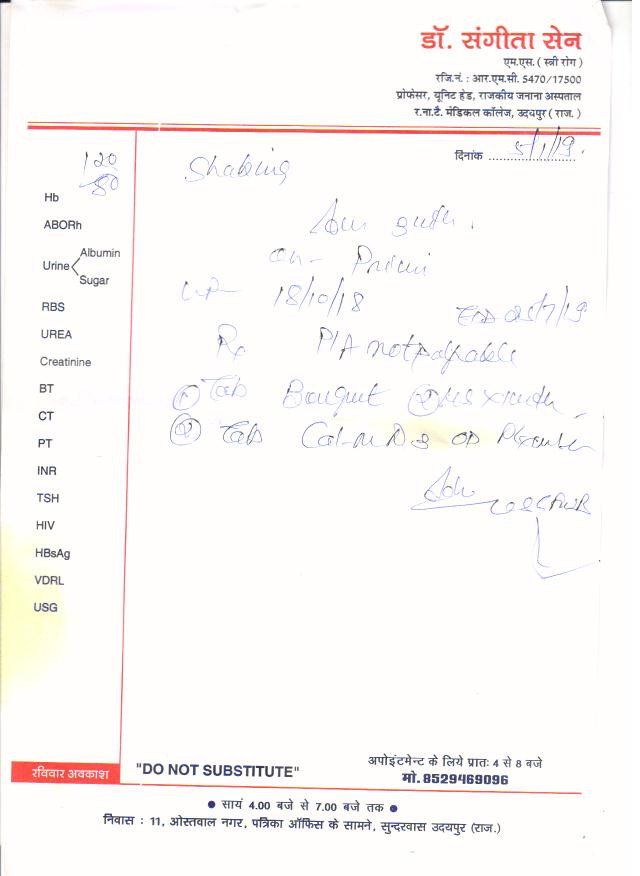 डॉ. संगीता सेन
एम.एस. ( स्त्री रोग )
रजि.नं. : आर.एम.सी. 5470/17500
प्रोफेसर, यूनिट हेड, राजकीय जनाना अस्पताल
र.ना.टै. मेडिकल कॉलेज, उदयपुर ( राज. )
दिनांक 5/1/19.
120
80
Hb
ABORh
Urine Albumin
Sugar
RBS
UREA
Creatinine
BT
CT
PT
INR
TSH
HIV
HBsAg
VDRL
USG
Primi
18/10/18
EDD 25/7/19
Rx P/A not palpable
① Tab
② Tab D3 OD
Adv
रविवार अवकाश
"DO NOT SUBSTITUTE"
अपोइंटमेन्ट के लिये प्रातः 4 से 8 बजे
मो. 8529469096
● सायं 4.00 बजे से 7.00 बजे तक ●
निवास : 11, ओस्तवाल नगर, पत्रिका ऑफिस के सामने, सुन्दरवास उदयपुर (राज.)